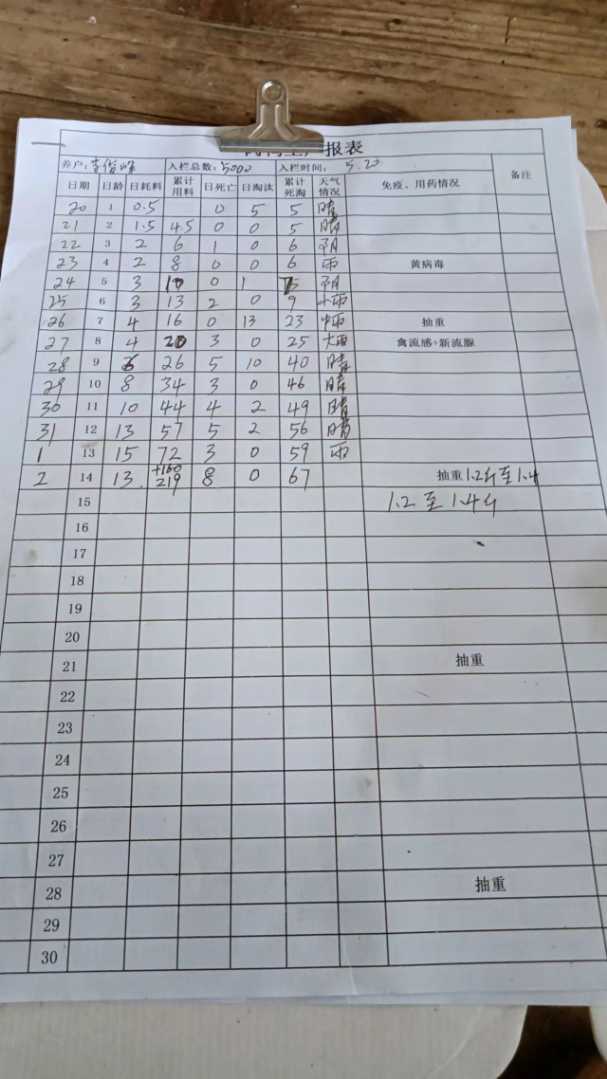 报表
养户: 入栏总数: 5000 入栏时间: 5.20
日期 日龄 日耗料 累计用料 日死亡 日淘汰 累计死淘 天气情况 免疫、用药情况 备注
20 1 0.5 0 5 5 晴
21 2 1.5 4.5 0 0 5 晴
22 3 2 6 1 0 6 阴
23 4 2 8 0 0 6 雨 黄病毒
24 5 3 10 0 1 阴
25 6 3 13 2 0 9 小雨
26 7 4 16 0 13 23 抽重
27 8 4 20 3 0 25 大雨 禽流感+新流腺
28 9 6 26 5 10 40 晴
29 10 8 34 3 0 46 晴
30 11 10 44 4 2 49 晴
31 12 13 57 5 2 56 晴
1 13 15 72 3 0 59 雨
2 14 13 +160 219 8 0 67 抽重 1.2斤至1.4
15 1.2至1.4斤
16
17
18
19
20
21 抽重
22
23
24
25
26
27
28 抽重
29
30